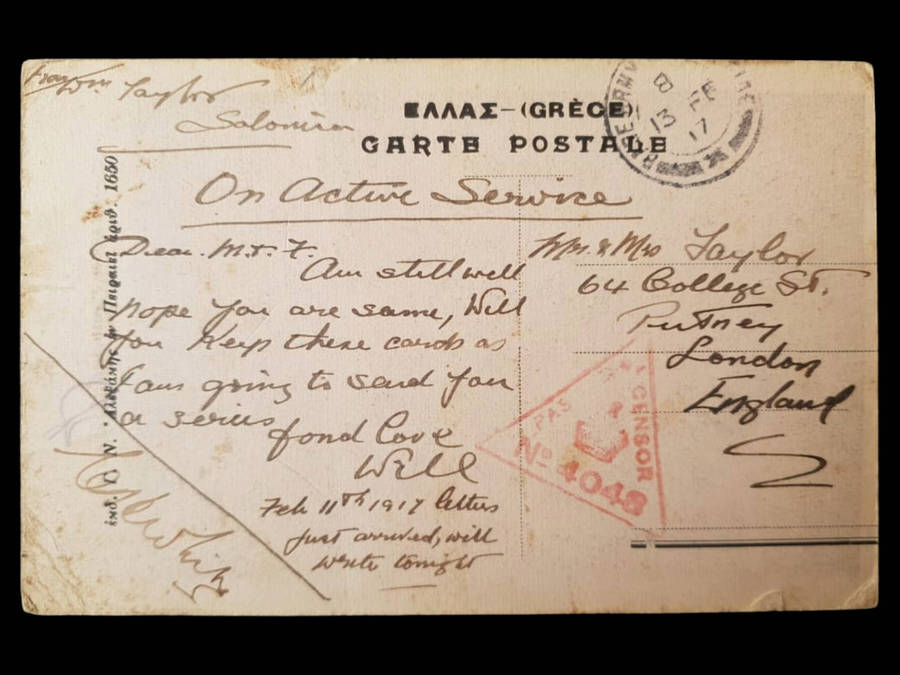 From Wm Taylor
Salonica
ΕΛΛΑΣ-(GRÈCE)
CARTE POSTALE
On Active Service
Dear M. & F.
Am still well
hope you are same, Will
you keep these cards as
I am going to send you
a series
fond love
Will
Feb 11th 1917 letters
just arrived, will
write tonight
Mr. & Mrs Taylor
64 College St.
Putney
London
England
CENSOR
No 4048
13 FE
17
ἐν Πειραιεῖ ἀριθ. 1650